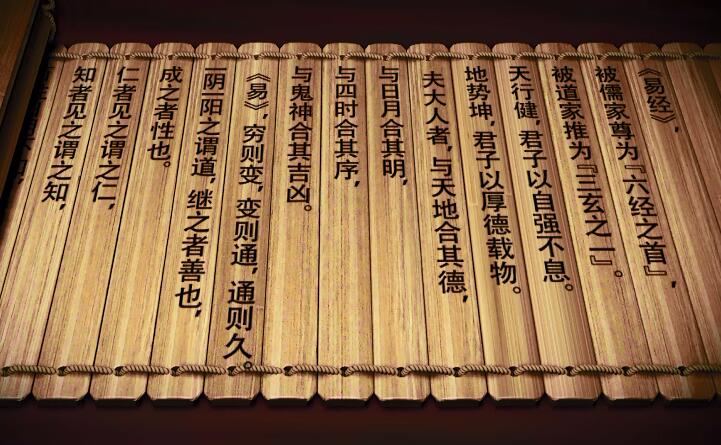 《易经》，
被儒家尊为『六经之首』，
被道家推为『三玄之一』。
天行健，君子以自强不息。
地势坤，君子以厚德载物。
夫大人者，与天地合其德，
与日月合其明，
与四时合其序，
与鬼神合其吉凶。
《易》，穷则变，变则通，通则久。
一阴一阳之谓道，继之者善也，
成之者性也。
仁者见之谓之仁，
知者见之谓之知，